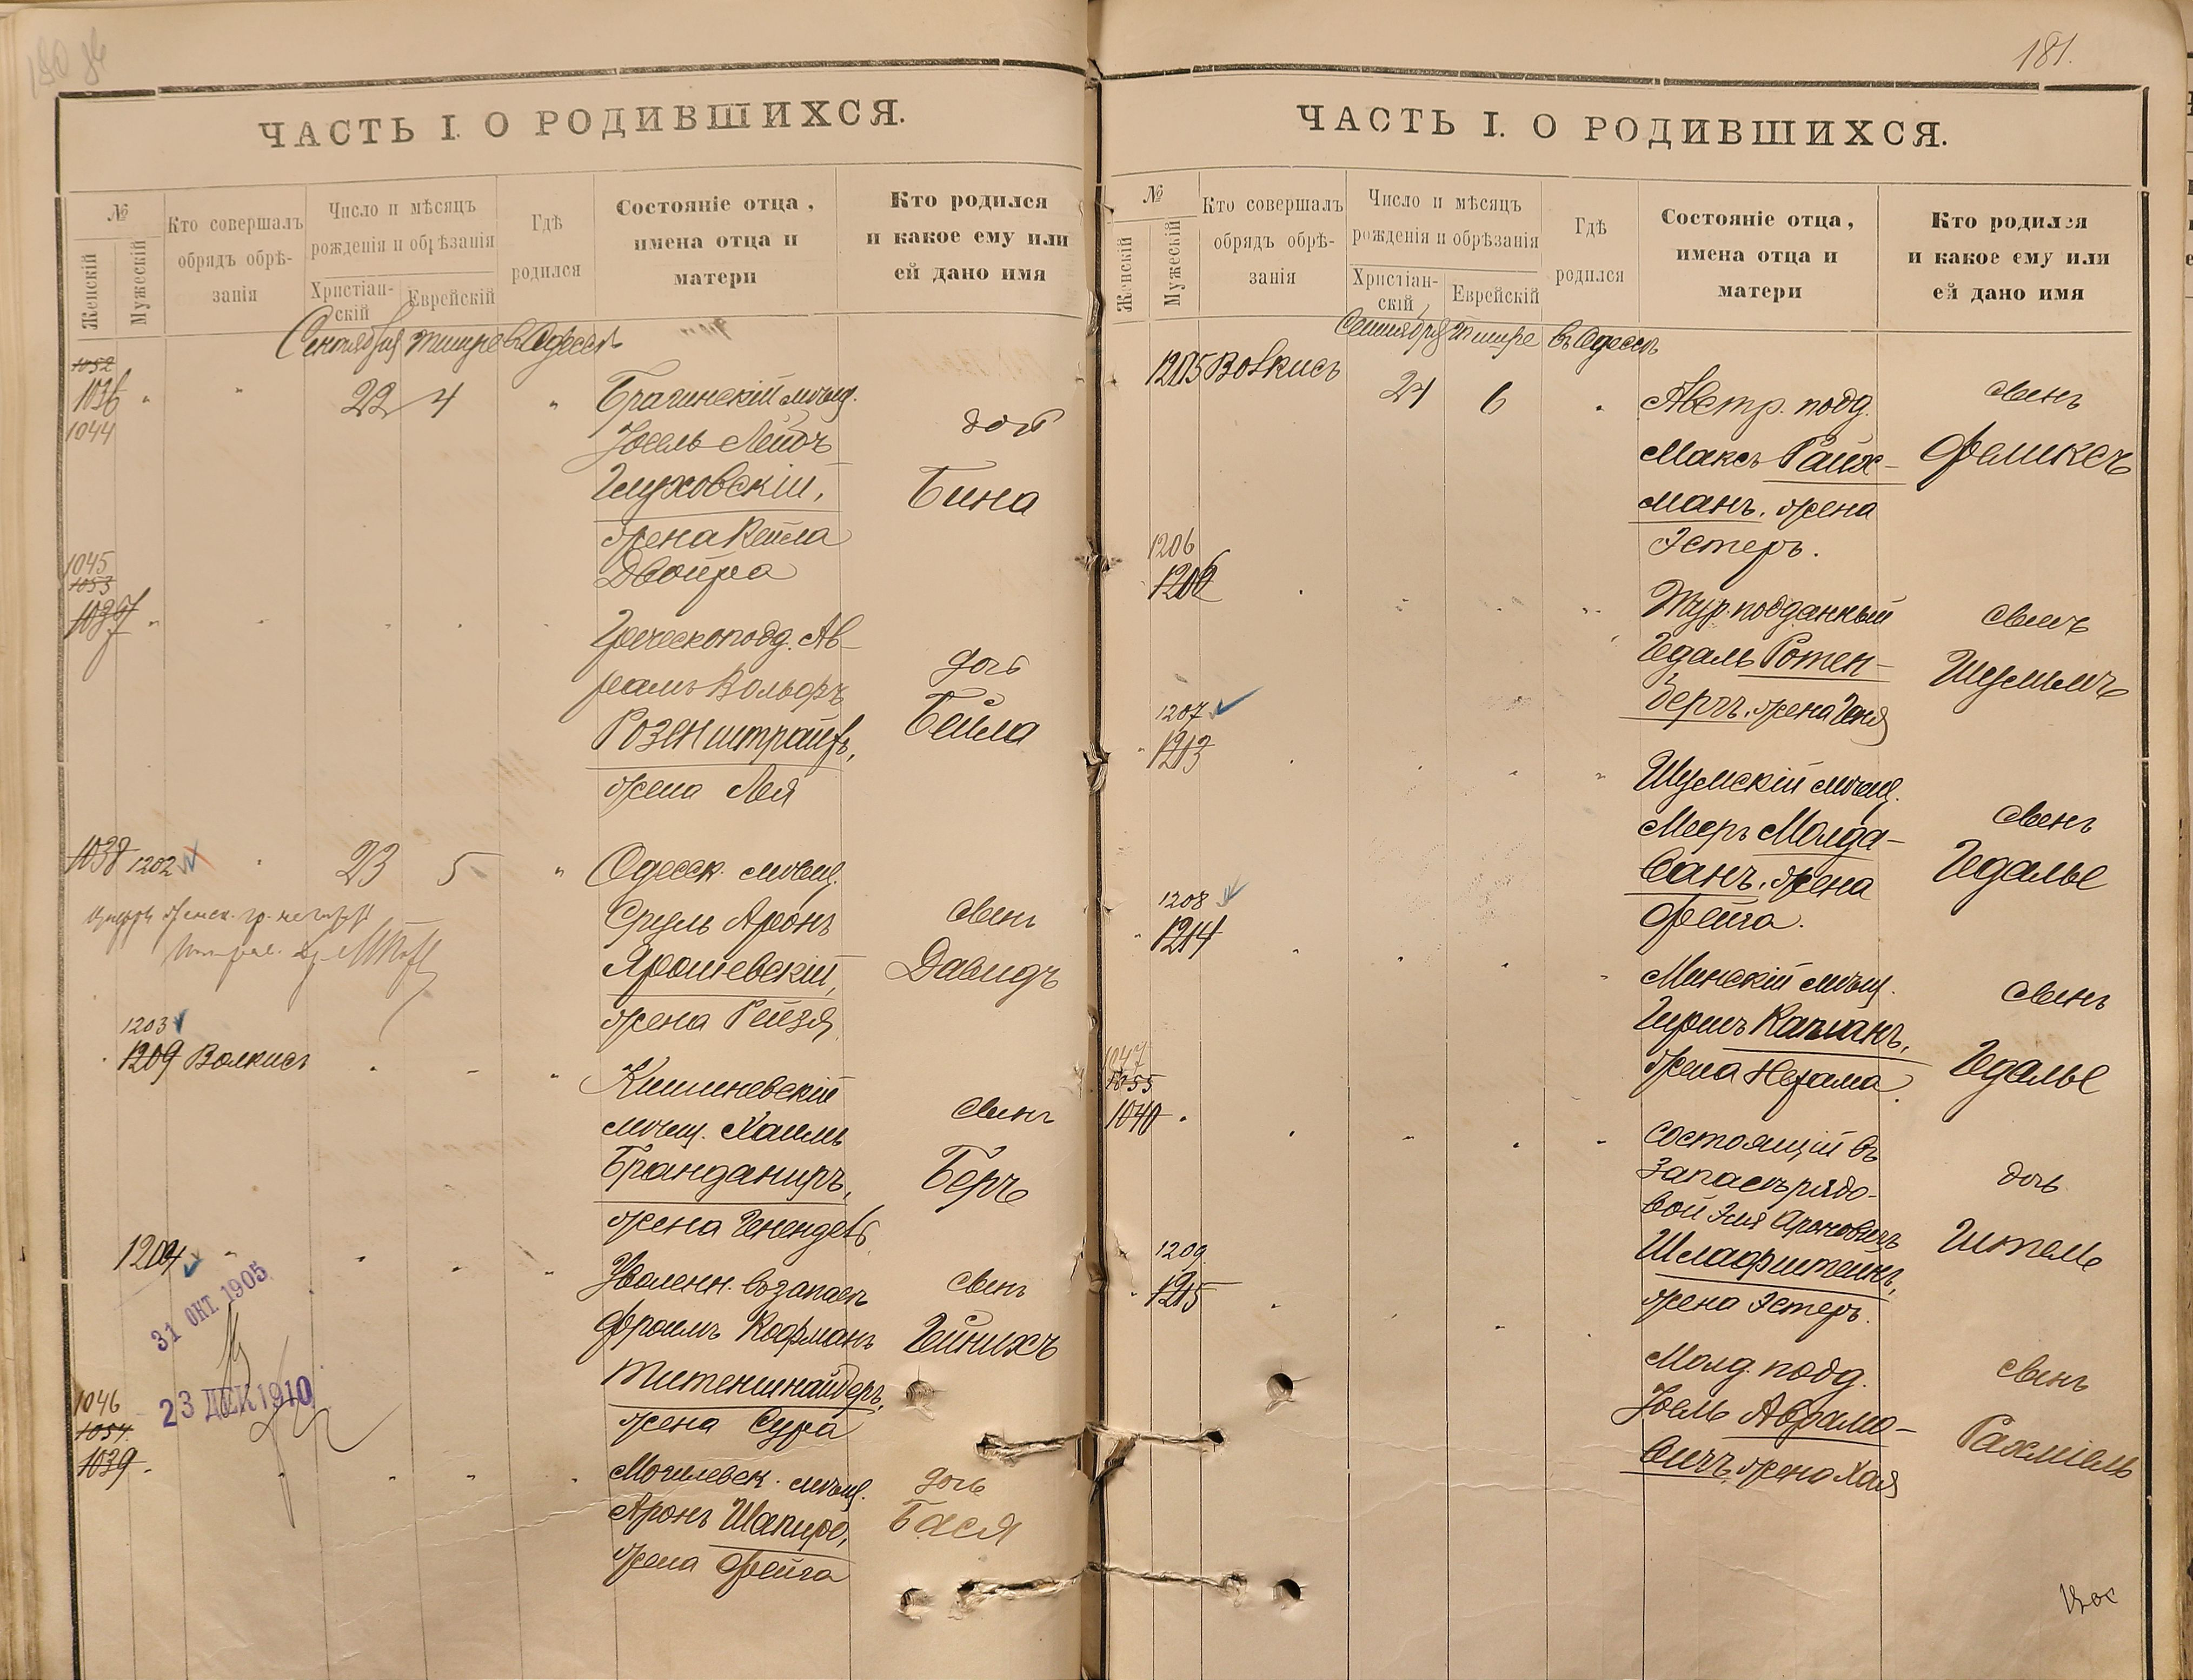 ЧАСТЬ I. О РОДИВШИХСЯ.
№
Женскій
Мужескій
Кто совершалъ
обрядъ обрѣ-
занія
Число и мѣсяцъ
рожденія и обрѣзанія
Христіан-
скій
Еврейскій
Гдѣ
родился
Состояніе отца,
имена отца и
матери
Кто родился
и какое ему или
ей дано имя
Сентября тишре въ Одессѣ
1052
1036
1044
22 4
Брагинскій мѣщ.
Іосель Лейбъ
Глуховскій,
жена Кейла
Двойра
дочь
Бина
1045
1053
1037
Греческоподд. Ав-
рамъ Вольфъ
Розенштрайхъ,
жена Лея
дочь
Бейла
1038 1202
23 5
Одесск. мѣщ.
Сруль Аронъ
Ярошевскій,
жена Рейзя
сынъ
Давидъ
1203
1209 Волкисъ
Кишиневскій
мѣщ. Хаимъ
жена Генендель
сынъ
Беръ
1204
31 ОКТ. 1905
23 ДЕК 1910
Уволенн. въ запасъ
Фроимъ Кофманъ
жена Сура
сынъ
Гейнихъ
1046
1054
1039
Могилевск. мѣщ.
Аронъ Шапиро,
жена Фейга
дочь
Бася
181.
ЧАСТЬ I. О РОДИВШИХСЯ.
№
Женскій
Мужескій
Кто совершалъ
обрядъ обрѣ-
занія
Число и мѣсяцъ
рожденія и обрѣзанія
Христіан-
скій
Еврейскій
Гдѣ
родился
Состояніе отца,
имена отца и
матери
Кто родился
и какое ему или
ей дано имя
Сентября тишре въ Одессѣ
1205 Волкисъ
24 6
Австр. подд.
Максъ Райх-
манъ, жена
Эстеръ.
сынъ
Феликсъ
1206
1206
Тур. подданный
Гедаль Ротен-
бергъ, жена Геня
сынъ
Шулимъ
1207
1213
Шумскій мѣщ.
Мееръ Молда-
ванъ, жена
Фейга.
сынъ
Гедалье
1208
1214
Минскій мѣщ.
Гиршъ Капланъ,
жена Нехама
сынъ
Гедалье
1047
1055
1040
Состоящій въ
запасѣ рядо-
вой Эля Ароновичъ
Шлафштейнъ,
жена Эстеръ.
дочь
Гитель
1209
1215
Молд. подд.
Іоель Абрамо-
вичъ, жена Хая
сынъ
Рахміель